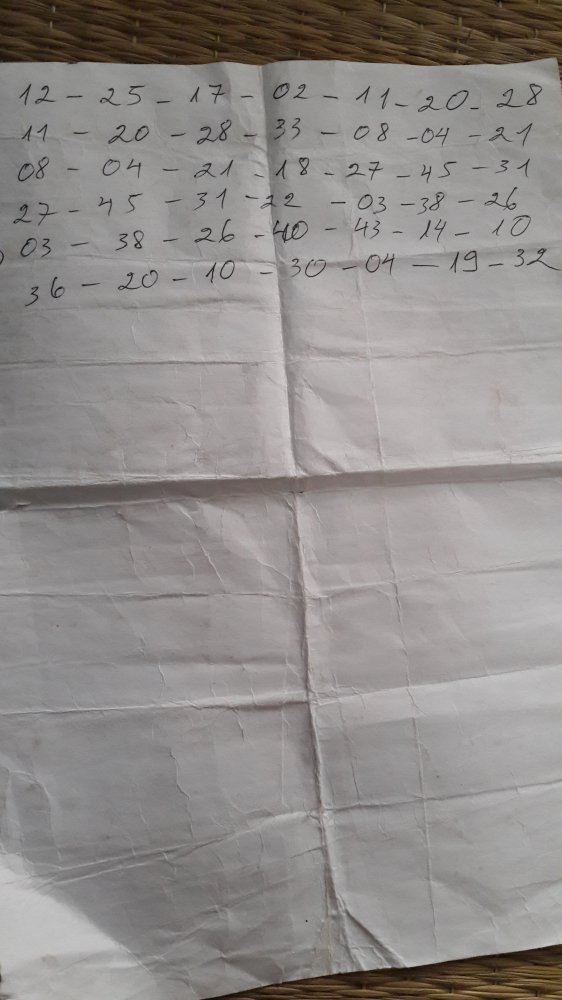 12 - 25 - 17 - 02 - 11 - 20 - 28
11 - 20 - 28 - 33 - 08 - 04 - 21
08 - 04 - 21 - 18 - 27 - 45 - 31
27 - 45 - 31 - 22 - 03 - 38 - 26
03 - 38 - 26 - 40 - 43 - 14 - 10
36 - 20 - 10 - 30 - 04 - 19 - 32